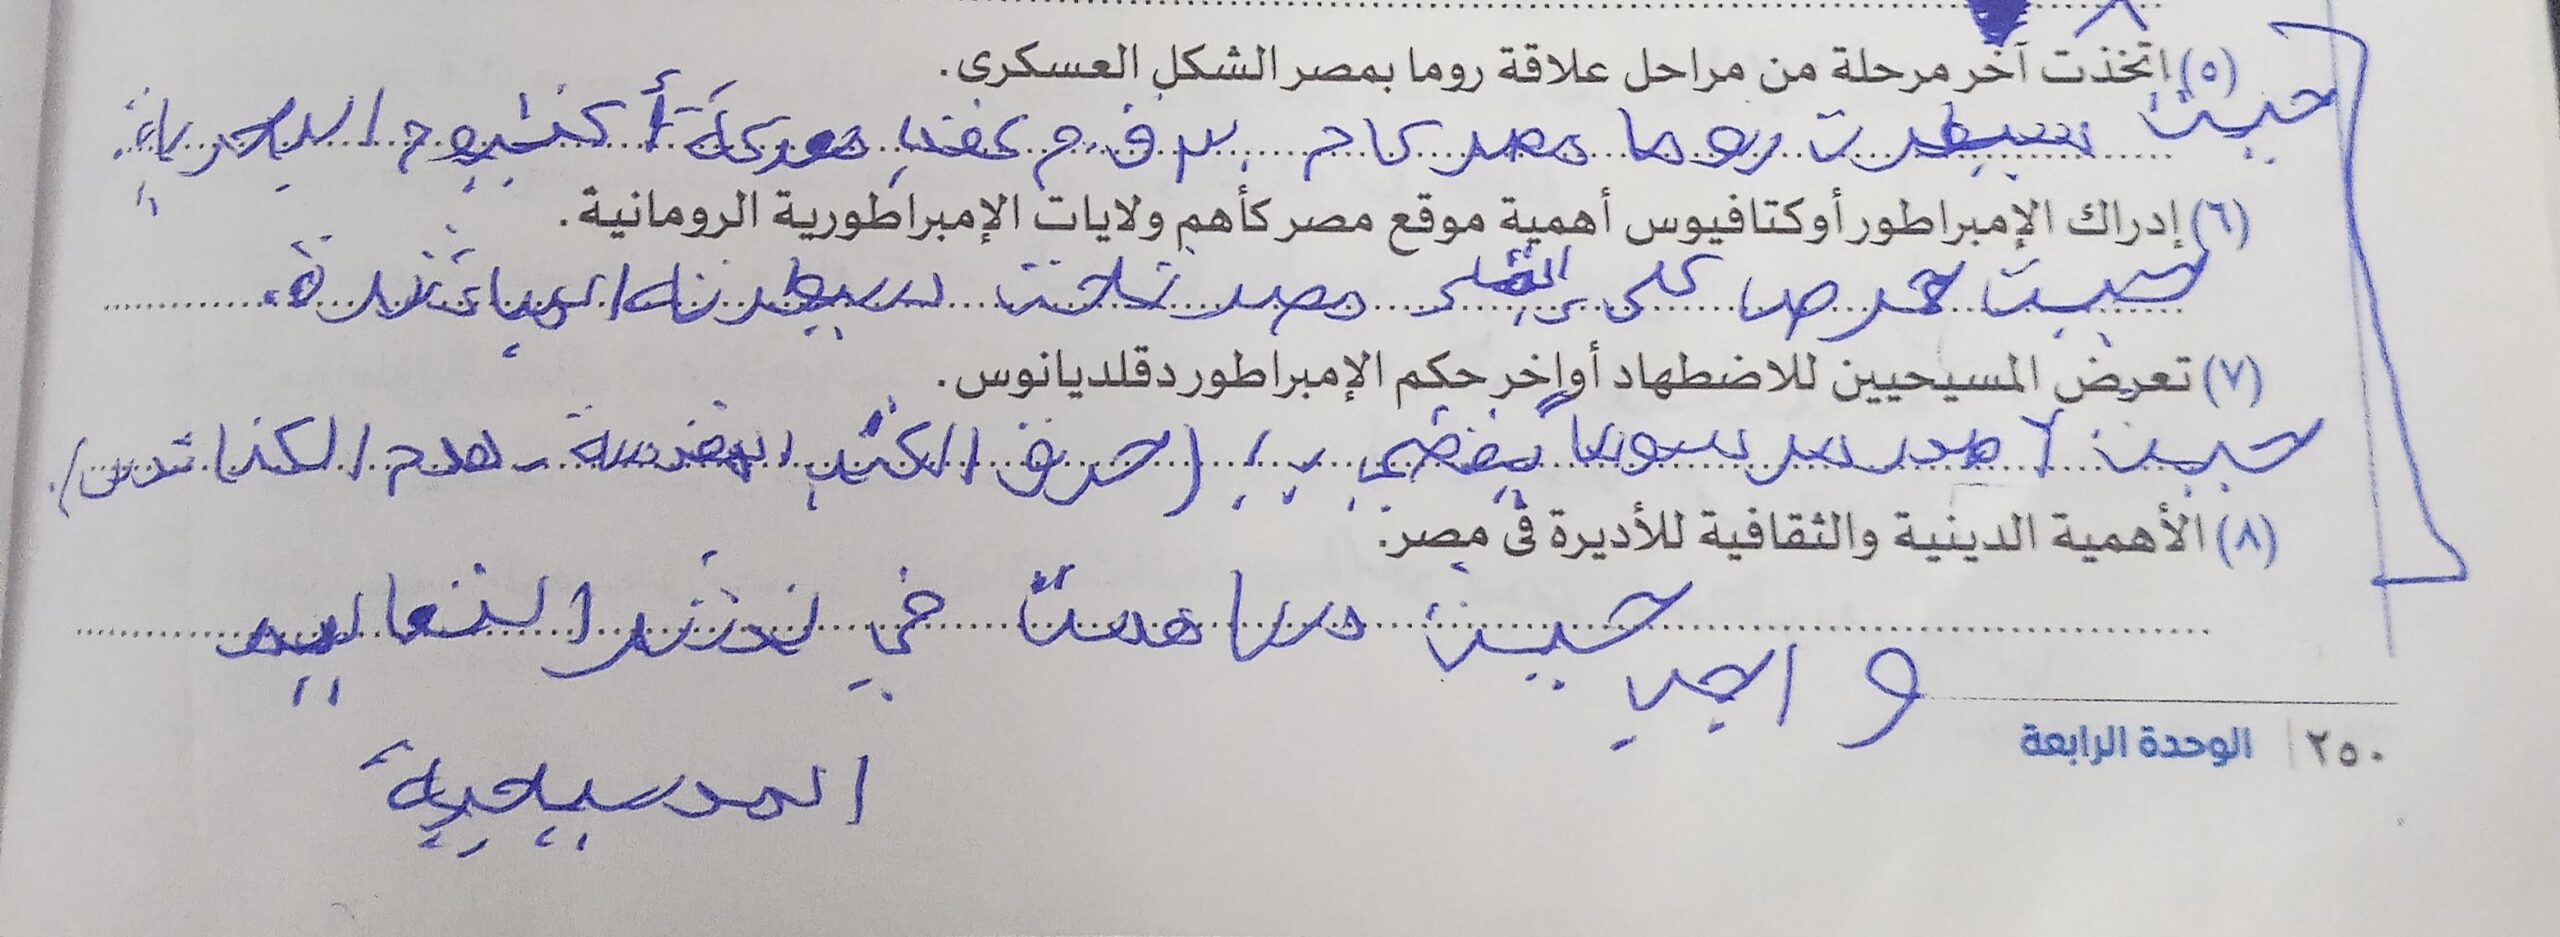 (٥) اتخذت آخر مرحلة من مراحل علاقة روما بمصر الشكل العسكرى.
حيث سيطرت روما مصر عام ق.م عقب معركة أكتيوم البحرية.
(٦) إدراك الإمبراطور أوكتافيوس أهمية موقع مصر كأهم ولايات الإمبراطورية الرومانية.
حيث حرص على مصر تحت سيطرته المباشرة.
(٧) تعرض المسيحيين للاضطهاد أواخر حكم الإمبراطور دقلديانوس.
حيث مرسوما يقضي ب (حرق الكتب المقدسة - هدم الكنائس).
(٨) الأهمية الدينية والثقافية للأديرة فى مصر.
حيث ساهمت في نشر التعاليم
المسيحية
٢٥٠ | الوحدة الرابعة